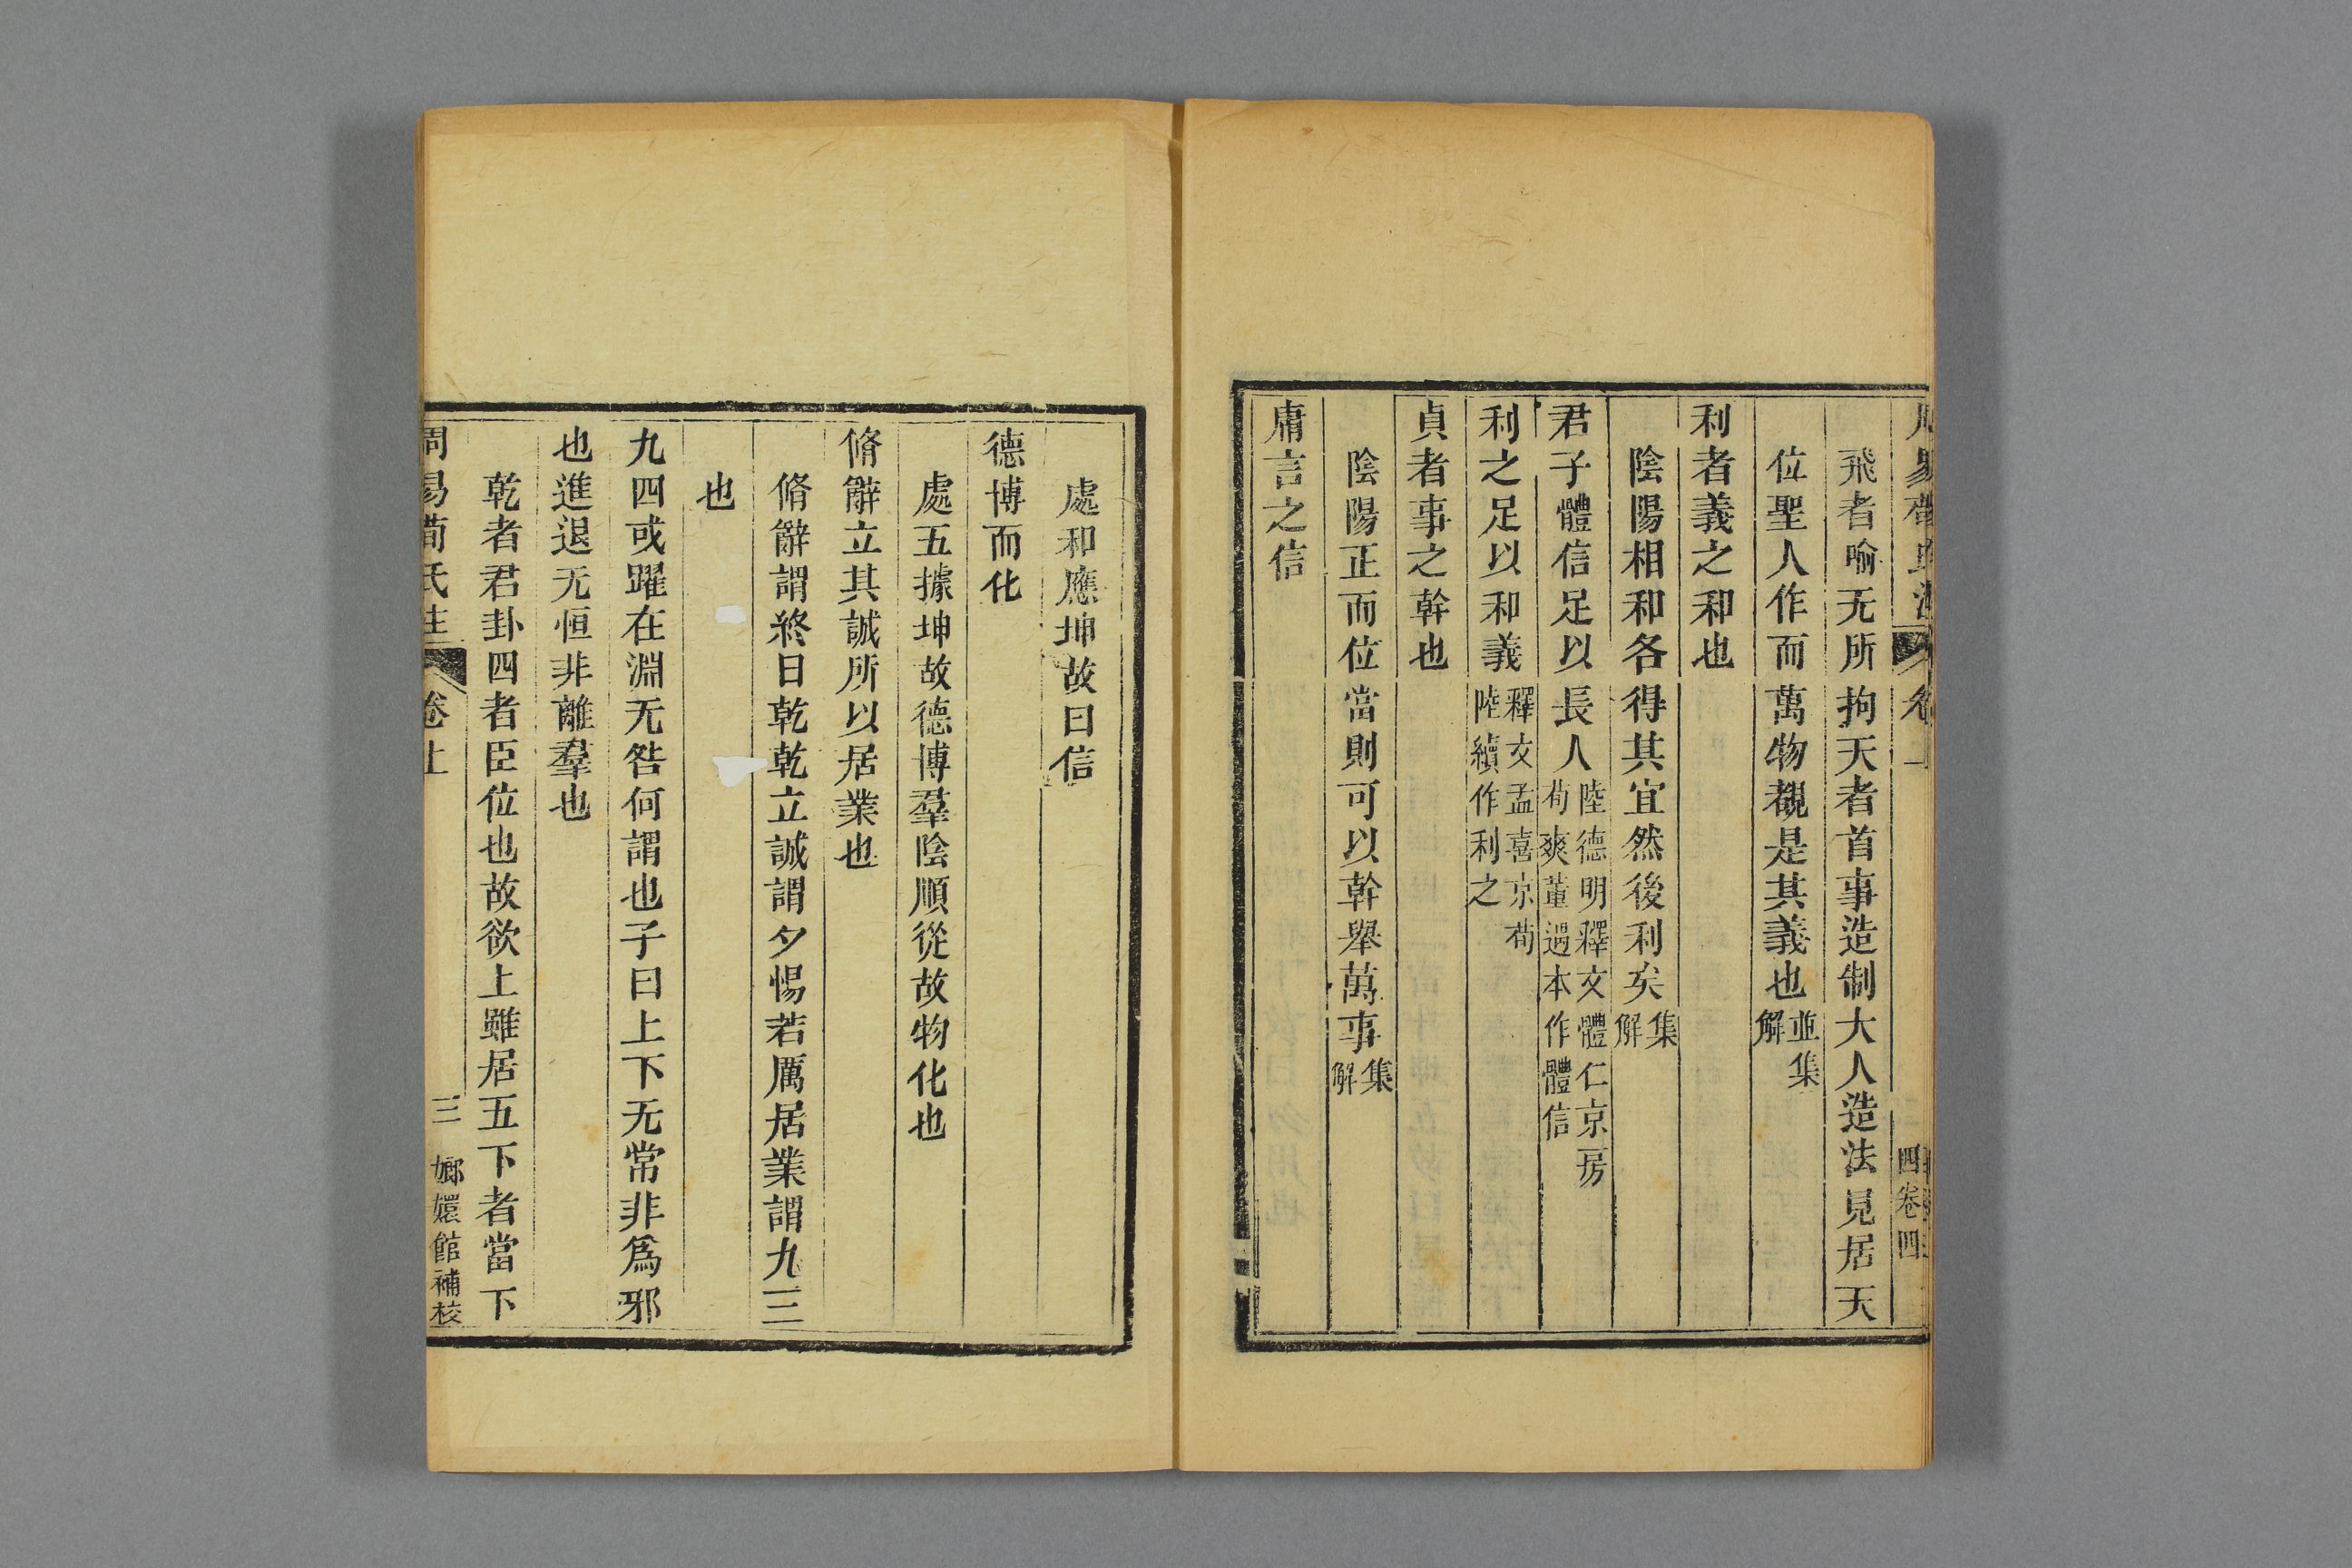 飛者喻无所拘天者首事造制大人造法見居天
位聖人作而萬物覩是其義也並集解
利者義之和也
陰陽相和各得其宜然後利矣集解
君子體信足以長人陸德明釋文體仁京房荀爽董遇本作體信
利之足以和義釋文孟喜京荀陸續作利之
貞者事之幹也
陰陽正而位當則可以幹舉萬事集解
庸言之信
處和應坤故曰信
德博而化
處五據坤故德博羣陰順從故物化也
脩辭立其誠所以居業也
脩辭謂終日乾乾立誠謂夕惕若厲居業謂九三
也
九四或躍在淵无咎何謂也子曰上下无常非爲邪
也進退无恒非離羣也
乾者君卦四者臣位也故欲上雖居五下者當下
周易荀氏注 卷上 三 嫏嬛館補校